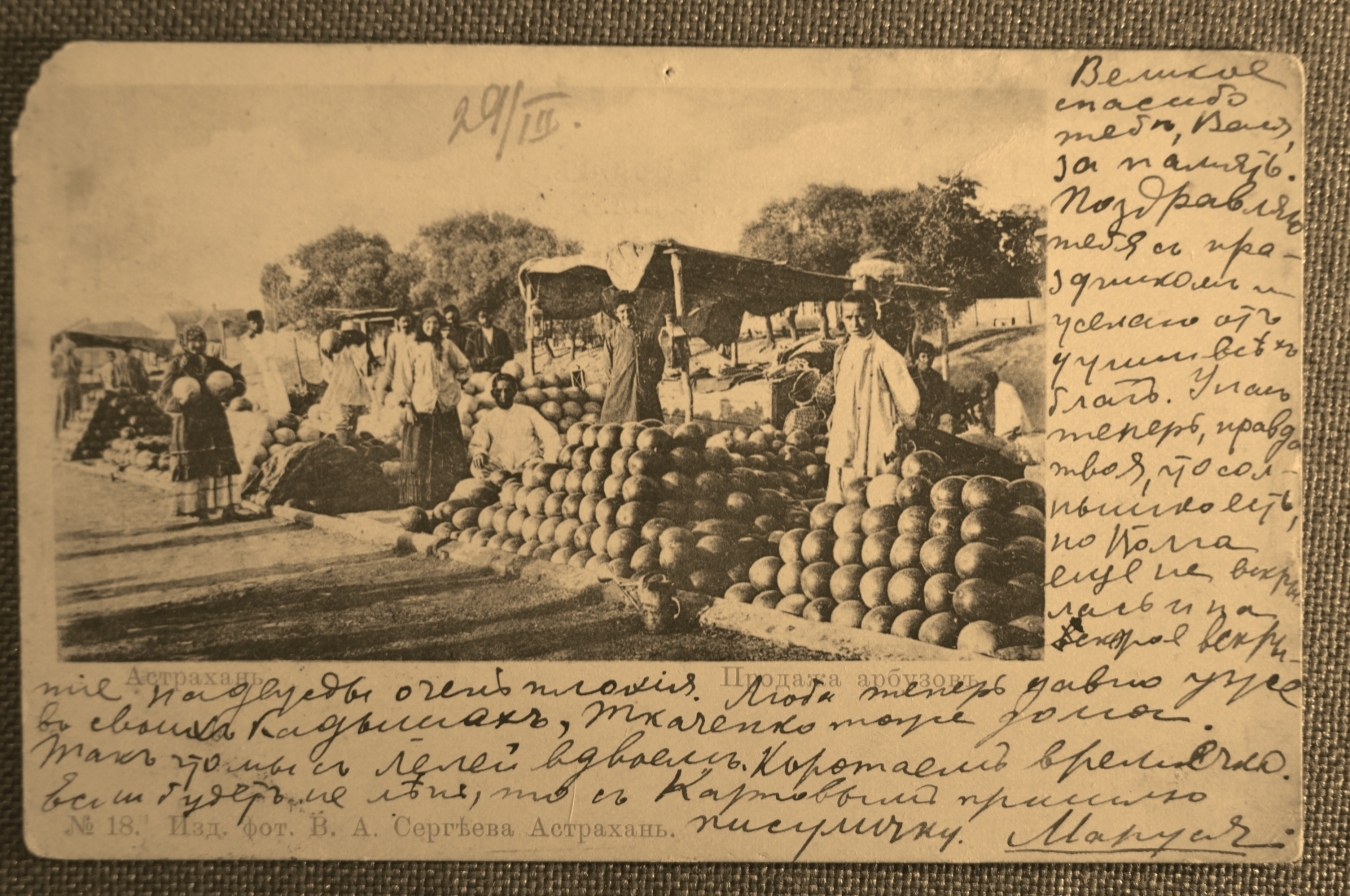 29/III.
Великое
спасибо
тебѣ, Валя,
за память.
Поздравляю
тебя съ пра-
здникомъ и
желаю отъ
души всѣхъ
благъ. У насъ
теперь, правда
твоя, что сол-
нышко есть,
но Волга
еще не вскры
лась и на
скорое вскры-
тіе надежды очень плохія. Люба теперь давно уже
въ своихъ Кадышахъ, Ткаченко тоже дома.
Такъ что мы съ Лелей вдвоемъ. Коротаемъ времячко.
Если будетъ не лѣнь, то съ Картовымъ пришлю
писуличку. Маруся.
Астрахань.
Продажа арбузовъ.
№ 18. Изд. фот. В. А. Сергѣева Астрахань.